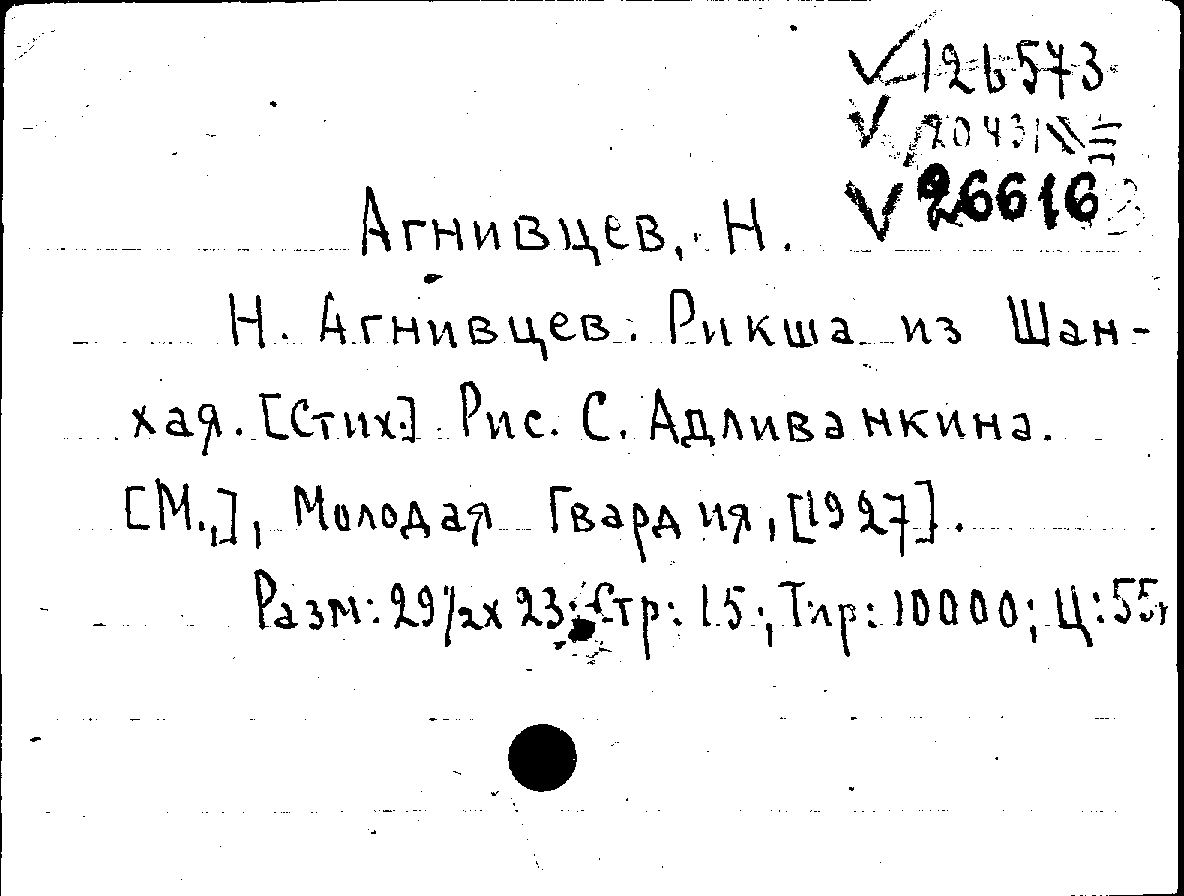 126573
26616
Агнивцев, Н.
Н. Агнивцев. Рикша из Шан-
хая. [Стих.] Рис. С. Адливанкина.
[М.,], Молодая Гвардия, [1927].
Разм: 29½ х 23; Стр: 15; Тир: 10000; Ц: 55